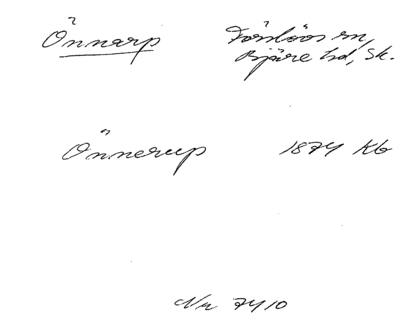 Önnarp Förslövs sn,
Bjäre hd, Sk.
Önnerup 1874 Kb
Nr 7410